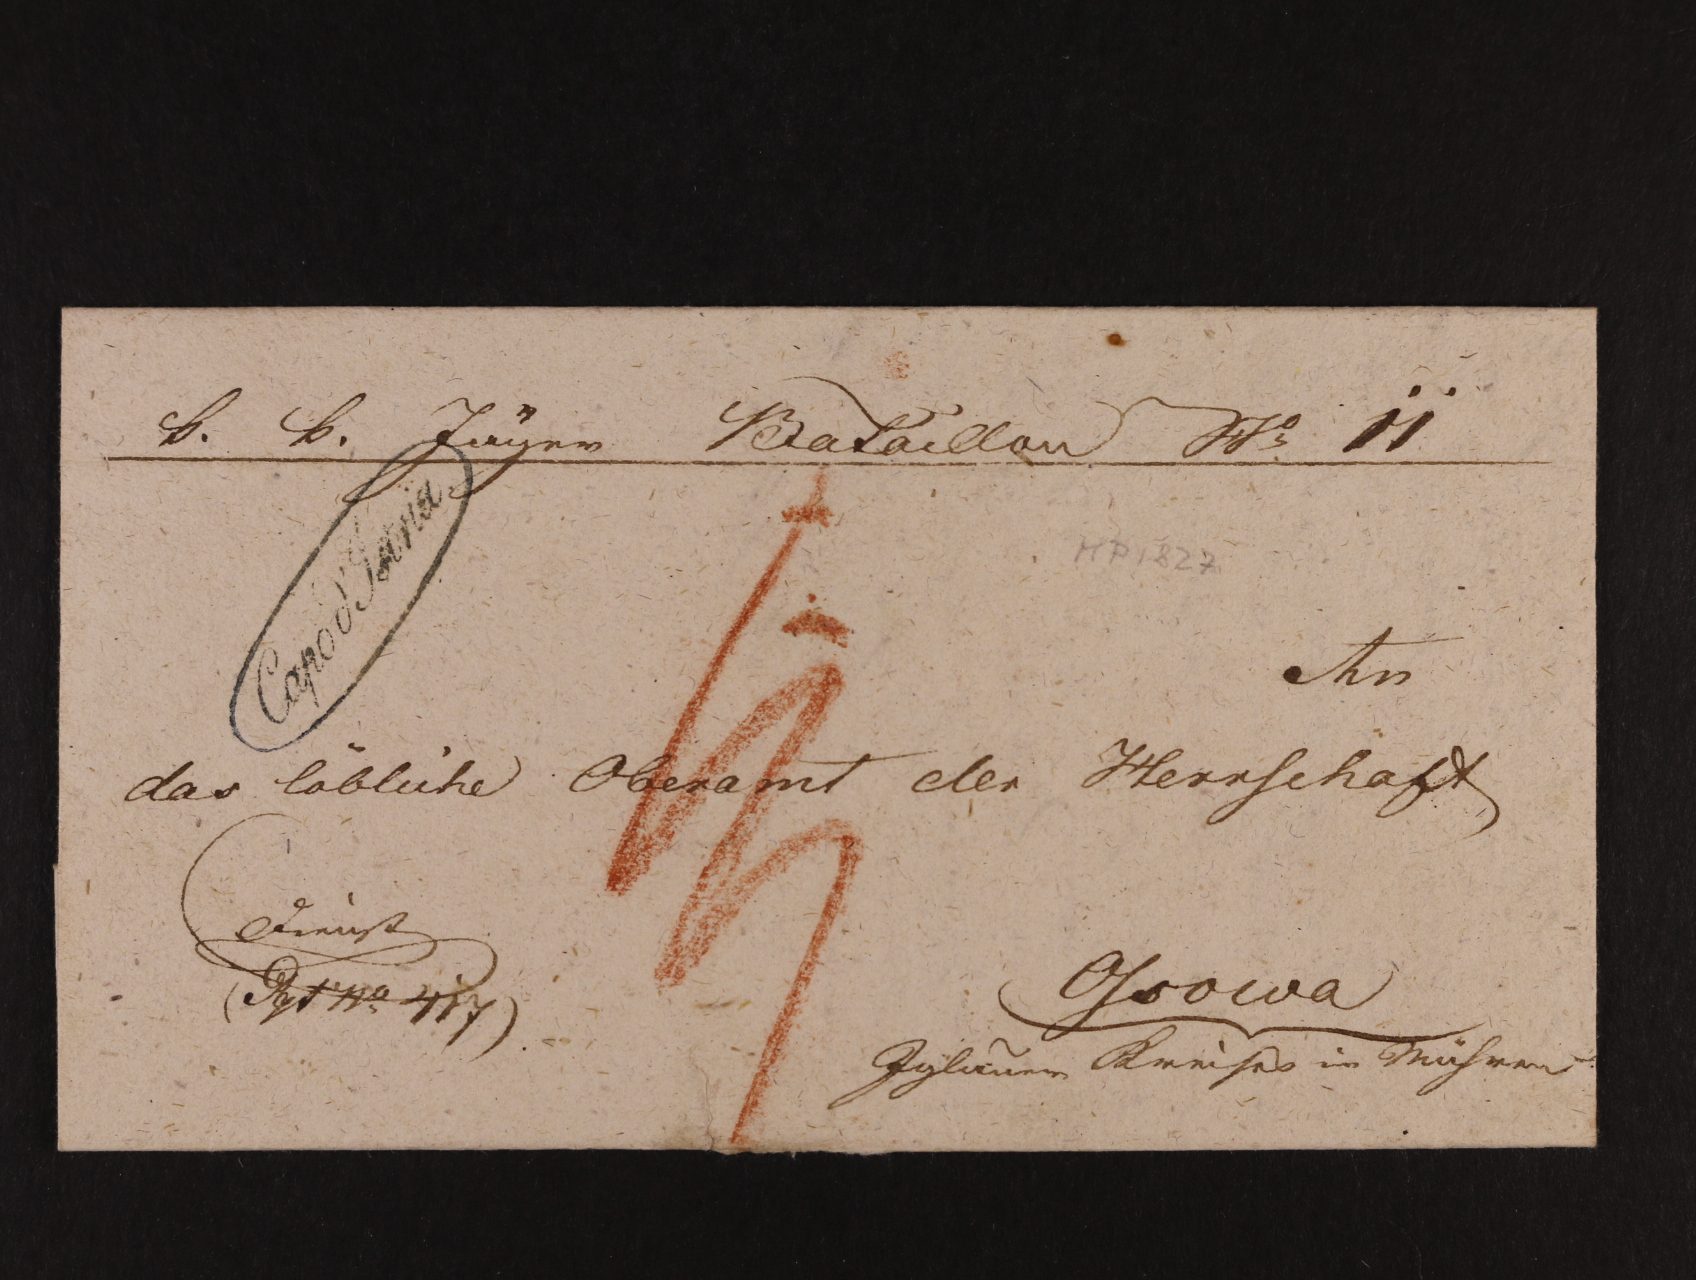 k. k. Jäger Bataillon No 11
Capo d'Istria
MP 1827
An
das löbliche Oberamt der Herrschaft
Dienst
(Pgt No 417)
Ossowa
Iglauer Kreises in Mähren